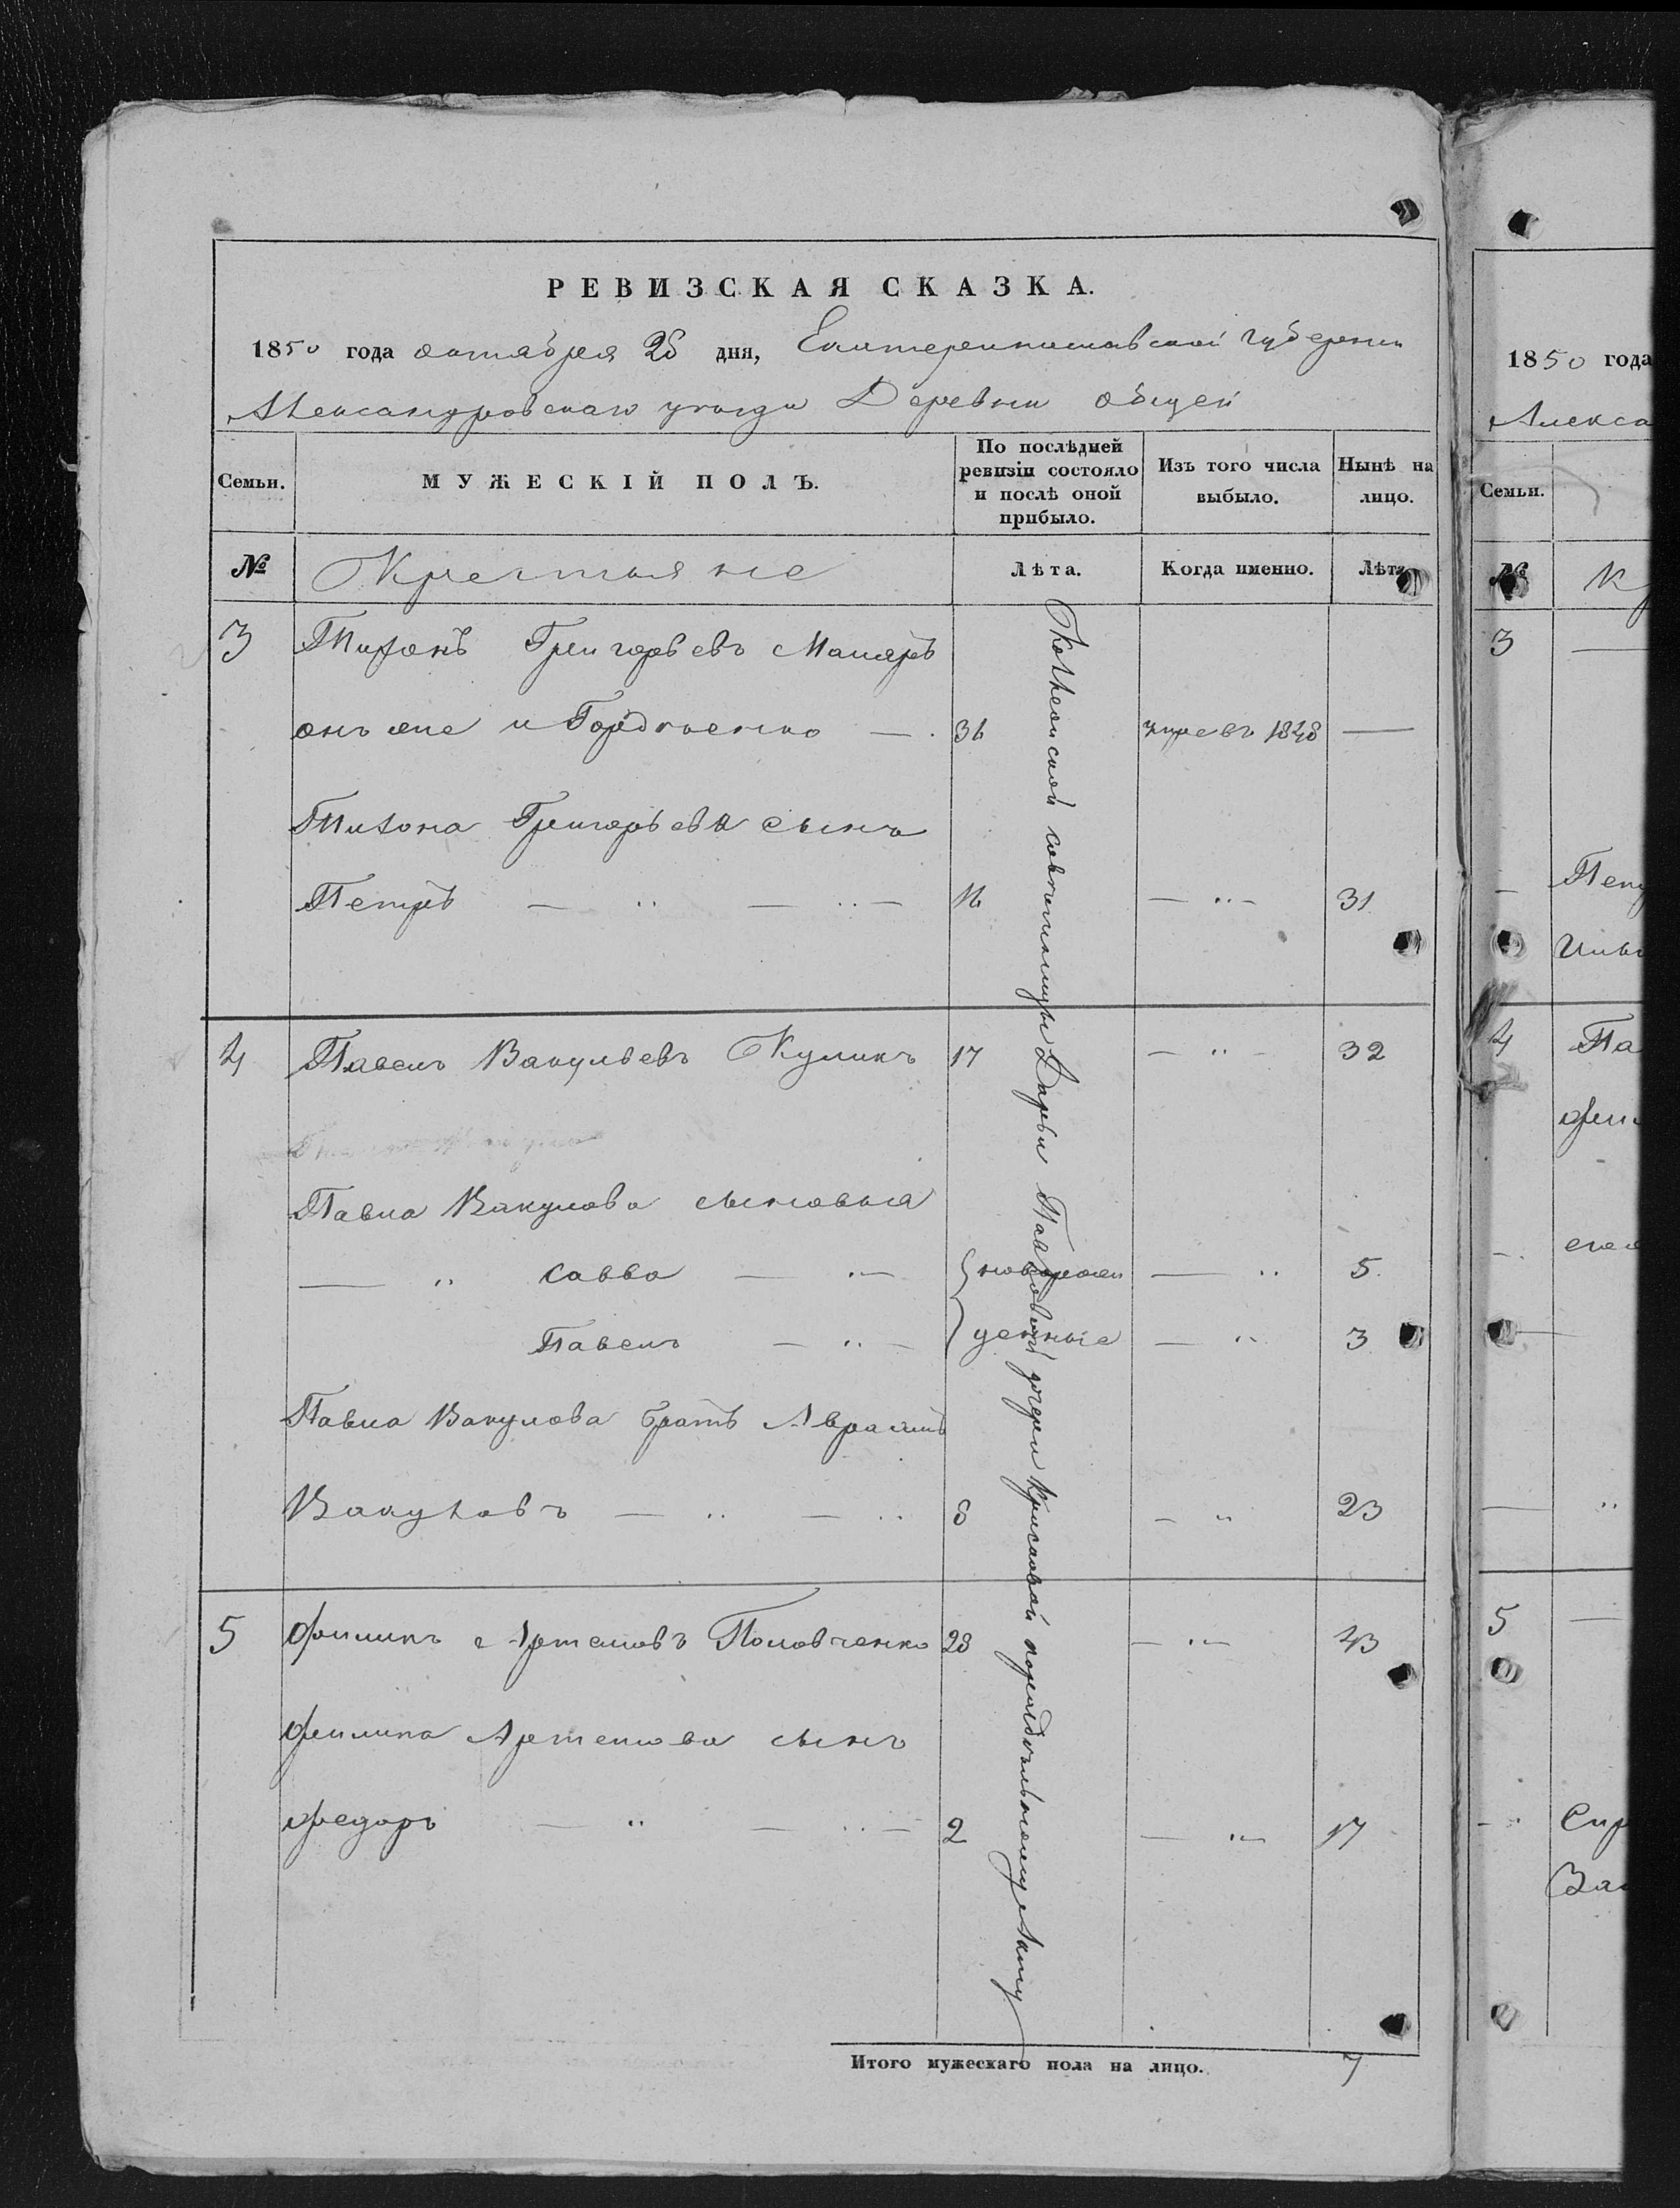 РЕВИЗСКАЯ СКАЗКА.
1850 года октября 25 дня, Екатеринославской губернии
Александровскаго уезда Деревни общей
Семьи.
МУЖЕСКІЙ ПОЛЪ.
По послѣдней ревизіи состояло и послѣ оной прибыло.
Изъ того числа выбыло.
Нынѣ на лицо.
№ Крестьяне Лѣта. Когда именно. Лѣта
3 Тихонъ Григорьевъ Маляръ
онъ же и Гордиенко — 36 умре въ 1848 —
Тихона Григорьева сынъ
Петръ — „ — „ — 16 — „ — 31
4 Павелъ Вакульевъ Куликъ 17 — „ — 32
Павла Вакулова сыновья
— „ савва — „ — новорож — „ 5.
Павелъ — „ — денные — „ 3
Павла Вакулова братъ Авраамъ
Вакуловъ — „ — „ 8 — „ 23
5 Филипъ Артемовъ Половченко 28 — „ — 43
Филипа Артемова сынъ
Федоръ — „ — „ — 2 — „ — 17
Коллежской советницы Дарьи Павловой дочери Крисаовой нераздельному
Итого мужескаго пола на лицо. 7
1850 года
Алекса
Семьи.
№ К
3 —
Петр
4 Па
5 —